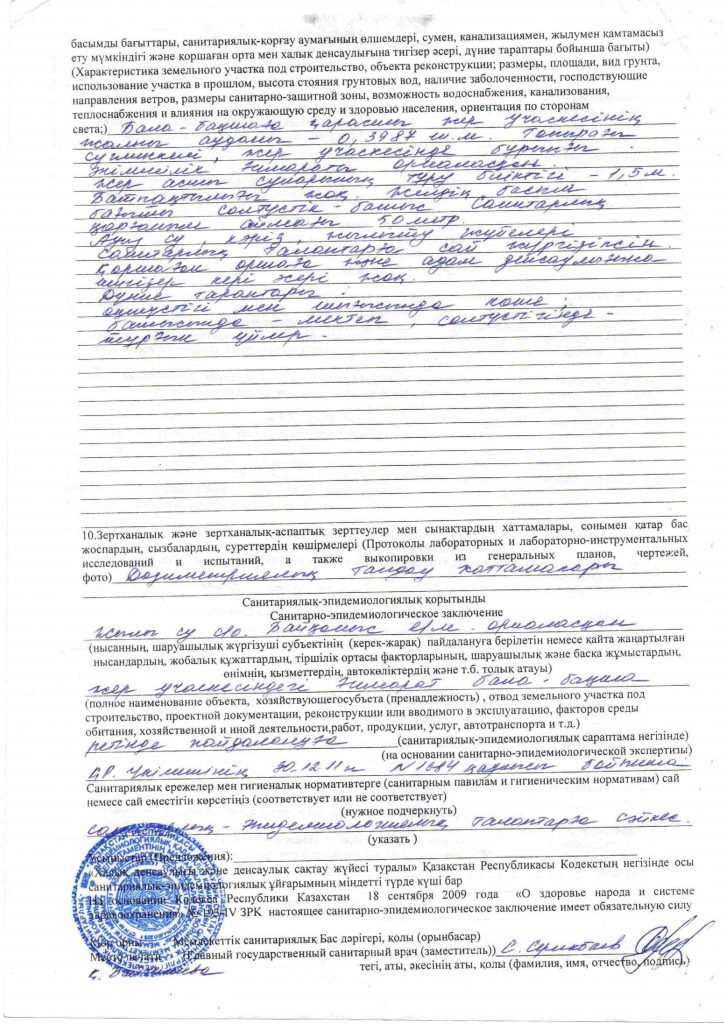 басымды бағыттары, санитариялық-қорғау аумағының өлшемдері, сумен, канализациямен, жылумен қамтамасыз
ету мүмкіндігі және қоршаған орта мен халық денсаулығына тигізер әсері, дүние тараптары бойынша бағыты)
(Характеристика земельного участка под строительство, объекта реконструкции; размеры, площади, вид грунта,
использование участка в прошлом, высота стояния грунтовых вод, наличие заболоченности, господствующие
направления ветров, размеры санитарно-защитной зоны, возможность водоснабжения, канализования,
теплоснабжения и влияния на окружающую среду и здоровью населения, ориентация по сторонам
света;) Бала-бақшаға қарасты жер учаскесінің
жалпы ауданы - 0,3987 ш.м. Топырағы
суглинкалі, жер учаскесінде бұрынғы
Әкімшілік ғимараты орналасқан.
Жер асты суларының тұру биіктігі - 1,5 м.
Батпақтылығы жоқ. Желдің басым
бағыты солтүстік-батыс. Санитарлық
қорғаныш аймағы 50 метр.
Ауыз су, кәріз, жылыту жүйелері
санитарлық талаптарға сай жүргізілсін.
Қоршаған ортаға және адам денсаулығына
тигізер кері әсері жоқ.
Дүние тараптары:
оңтүстігі мен шығысында көше,
батысында - мектеп, солтүстігінде -
тұрғын үйлер.
10.Зертханалық және зертханалық-аспаптық зерттеулер мен сынақтардың хаттамалары, сонымен қатар бас
жоспардың, сызбалардың, суреттердің көшірмелері (Протоколы лабораторных и лабораторно-инструментальных
исследований и испытаний, а также выкопировки из генеральных планов, чертежей,
фото) Дозиметриялық талдау хаттамалары
Санитариялық-эпидемиологиялық қорытынды
Санитарно-эпидемиологическое заключение
Жылы су а/о. орналасқан
(нысанның, шаруашылық жүргізуші субъектінің (керек-жарақ) пайдалануға берілетін немесе қайта жаңартылған
нысандардың, жобалық құжаттардың, тіршілік ортасы факторларының, шаруашылық және басқа жұмыстардың,
өнімнің, қызметтердің, автокөліктердің және т.б. толық атауы)
жер учаскесіндегі ғимарат бала-бақша
(полное наименование объекта, хозяйствующегосубъета (пренадлежность) , отвод земельного участка под
строительство, проектной документации, реконструкции или вводимого в эксплуатацию, факторов среды
обитания, хозяйственной и иной деятельности,работ, продукции, услуг, автотранспорта и т.д.)
ретінде пайдалануға (санитариялық-эпидемиологиялық сараптама негізінде)
(на основании санитарно-эпидемиологической экспертизы)
30.12.11ж N1684 бойынша
Санитариялық ережелер мен гигиеналық нормативтерге (санитарным павилам и гигиеническим нормативам) сай
немесе сай еместігін көрсетіңіз (соответствует или не соответствует)
(нужное подчеркнуть)
санитарлық-эпидемиологиялық талаптарға сәйкес.
(указать )
Ұсыныстар (Предложения):
«Халық денсаулығы және денсаулық сақтау жүйесі туралы» Қазақстан Республикасы Кодекстың негізінде осы
санитариялық-эпидемиологиялық ұйғарымның міндетті түрде күші бар
На основании Кодекса Республики Казахстан 18 сентября 2009 года «О здоровье народа и системе
здравоохранения» № 193-IV ЗРК настоящее санитарно-эпидемиологическое заключение имеет обязательную силу
Мөр орны Мемлекеттік санитариялық Бас дәрігері, қолы (орынбасар)
Место печати (Главный государственный санитарный врач (заместитель))
тегі, аты, әкесінің аты, қолы (фамилия, имя, отчество, подпись)